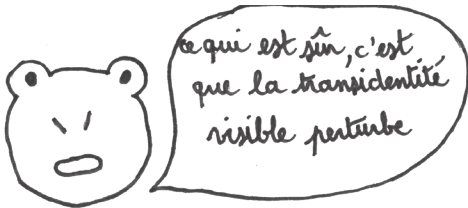 ce qui est sûr, c'est
que la transidentité
visible perturbe